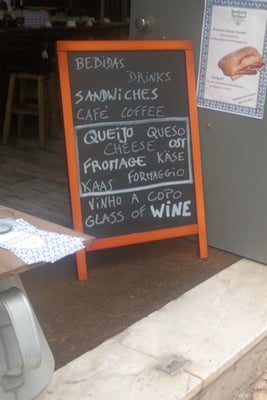 BEBIDAS
DRINKS
SANDWICHES
CAFÉ COFFEE
QUEIJO QUESO
CHEESE OST
FROMAGE KÄSE
KAAS FORMAGGIO
VINHO A COPO
GLASS OF WINE